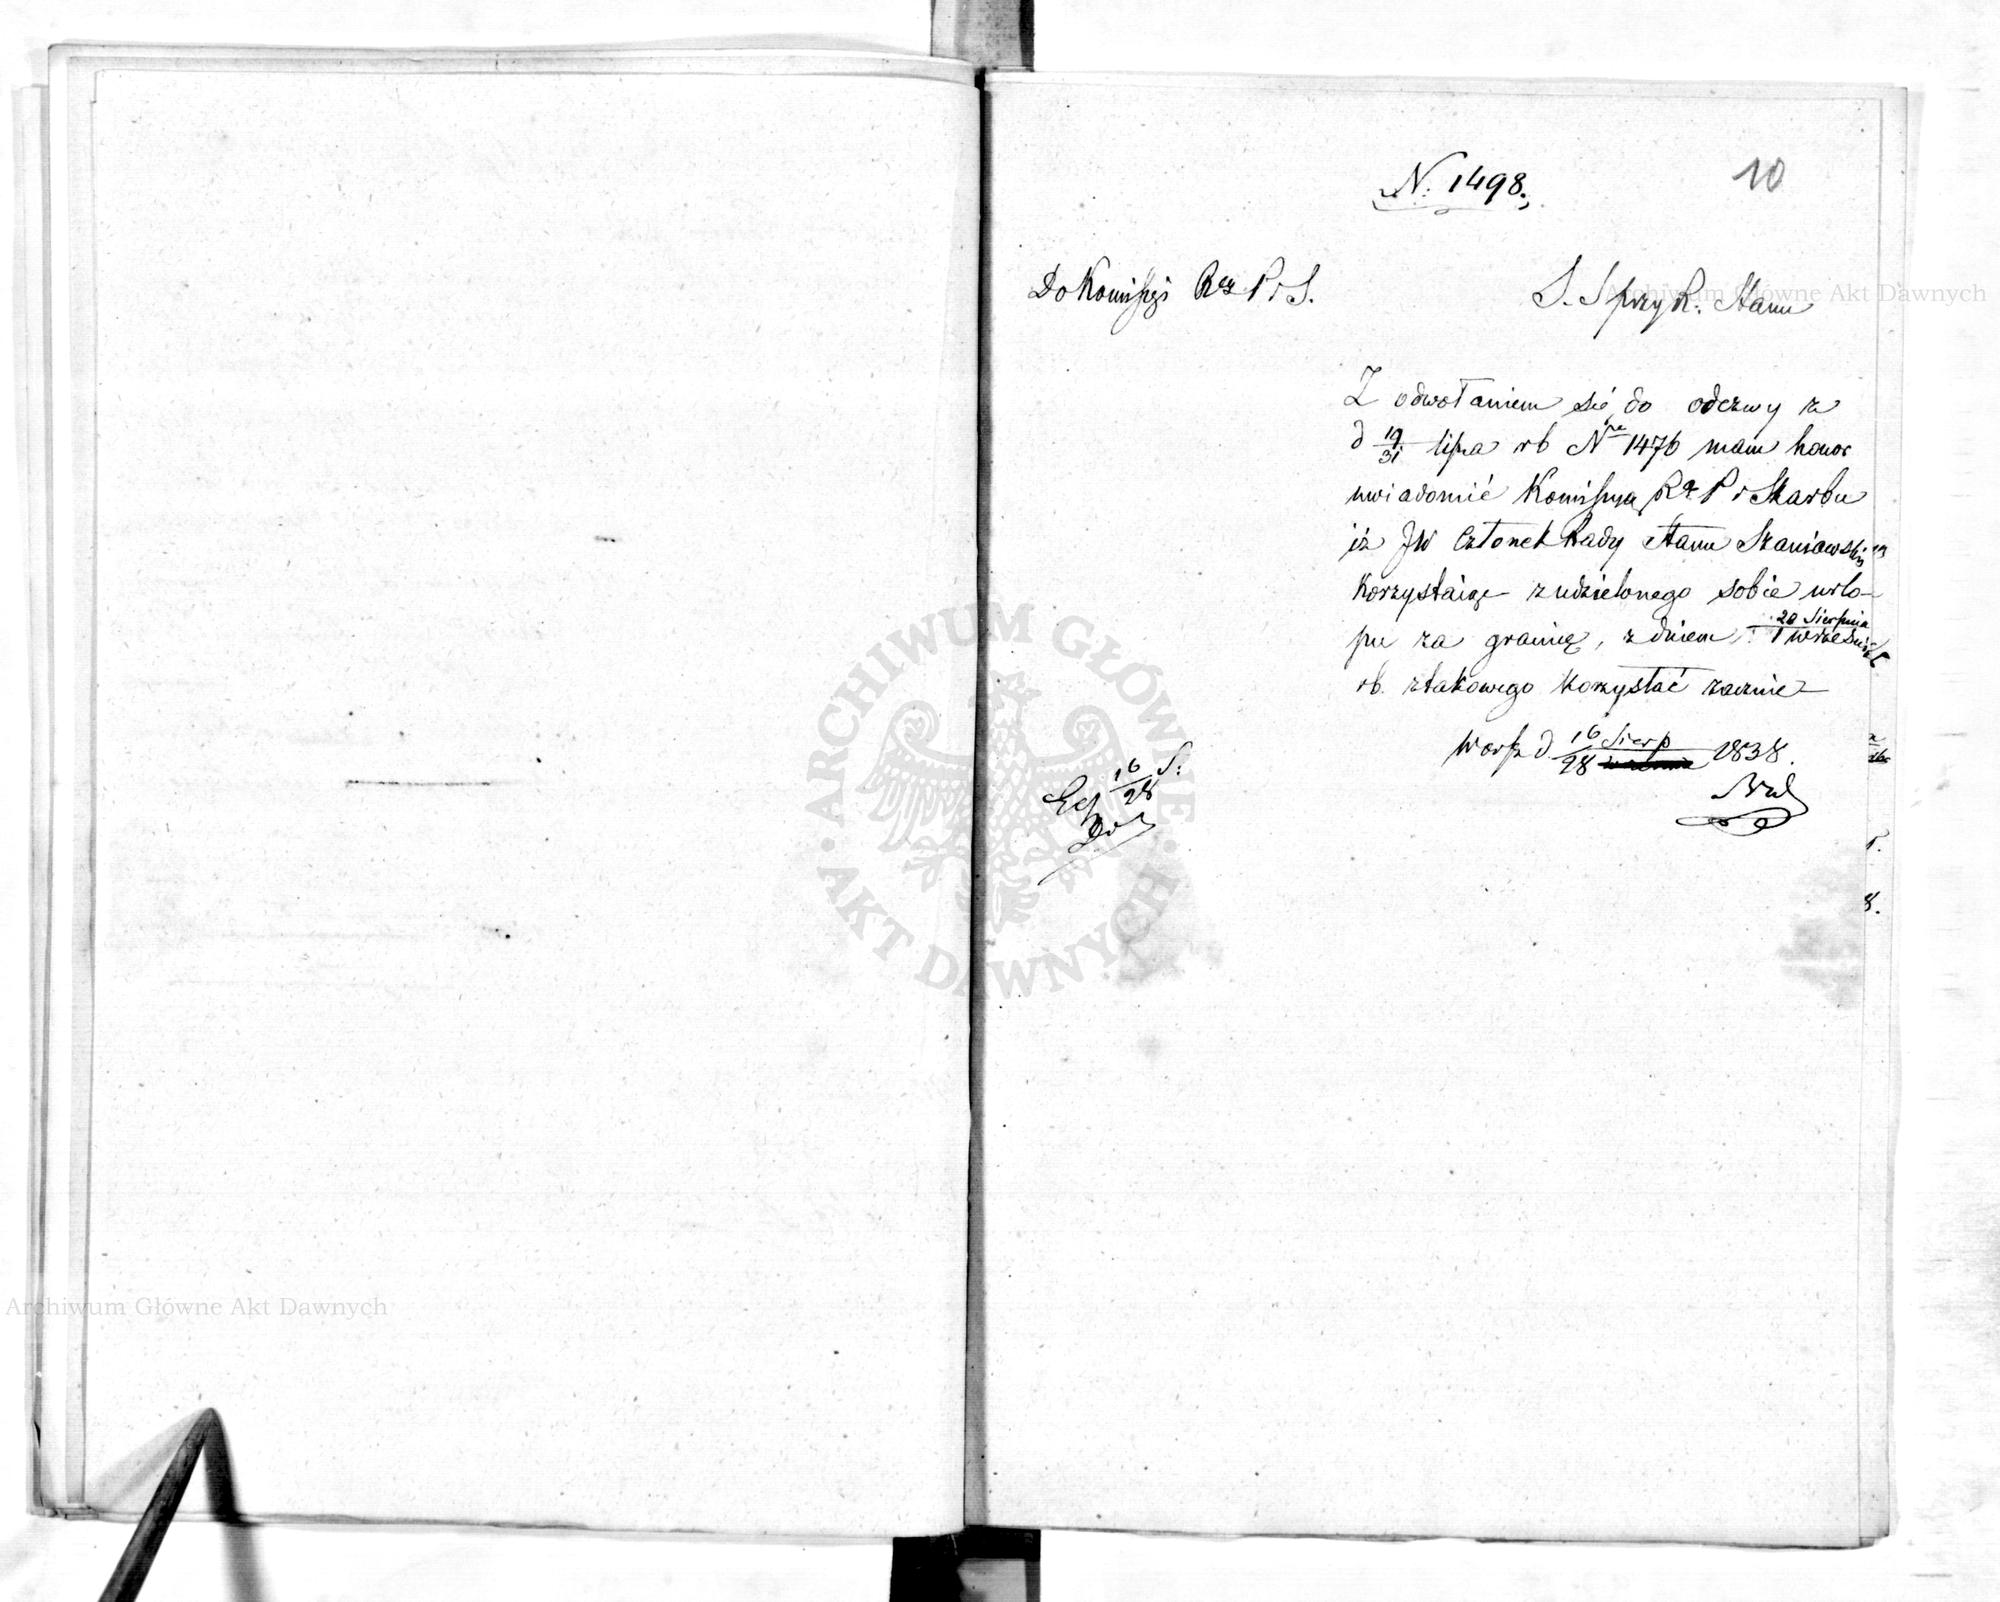 N. 1498.
10
Do Komissyi Rzz P i S.
S. S przy R. Stanu
Z odwołaniem się do odezwy z
d 19/31 lipca rb Nre 1476 mam honor
uwiadomić Komissyą Rz P i Skarbu
iż JW Członek Rady Stanu Szaniawski
korzystaiąc z udzielonego sobie urlo-
pu za granicę, z dniem 20 Sierpnia / 1 września
rb. z takowego korzystać zacznie
Warsz d 16 Sierp / 28 1838.
16/28 S.
Archiwum Główne Akt Dawnych
ARCHIWUM GŁÓWNE AKT DAWNYCH
Archiwum Główne Akt Dawnych